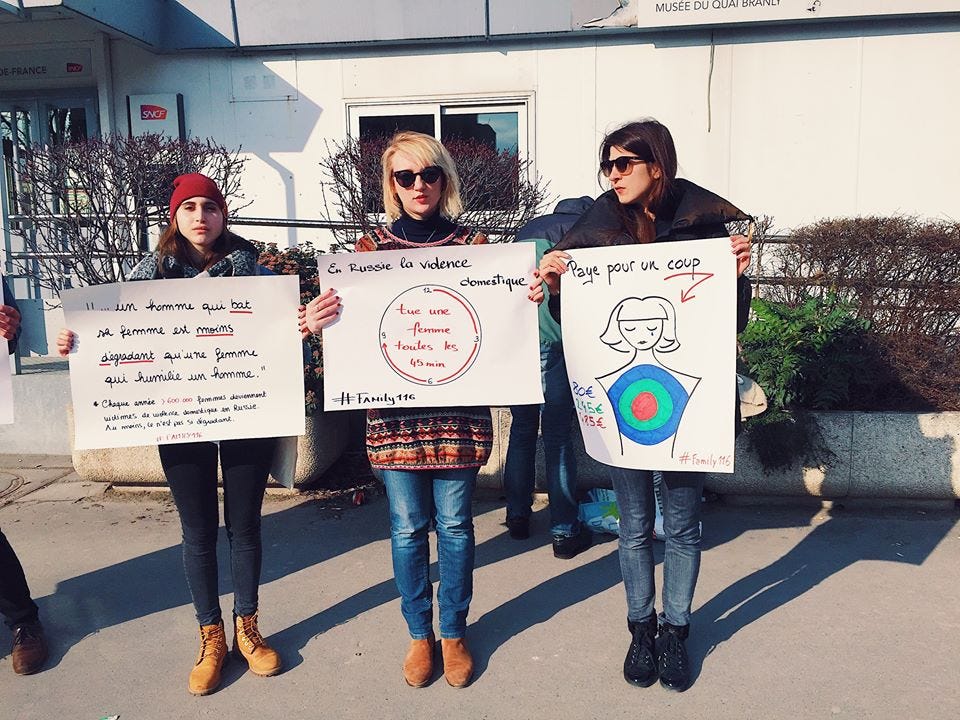 MUSÉE DU QUAI BRANLY
DE-FRANCE
SNCF
"... un homme qui bat
sa femme est moins
dégradant qu'une femme
qui humilie un homme."
* Chaque année > 600 000 femmes deviennent
victimes de violence domestique en Russie.
Au moins, ce n'est pas si dégradant.
#FAMILY116
En Russie la violence
domestique
12
3
6
9
tue une
femme
toutes les
45 min
#FAMILY116
Paye pour un coup
80€
245€
485€
#Family116